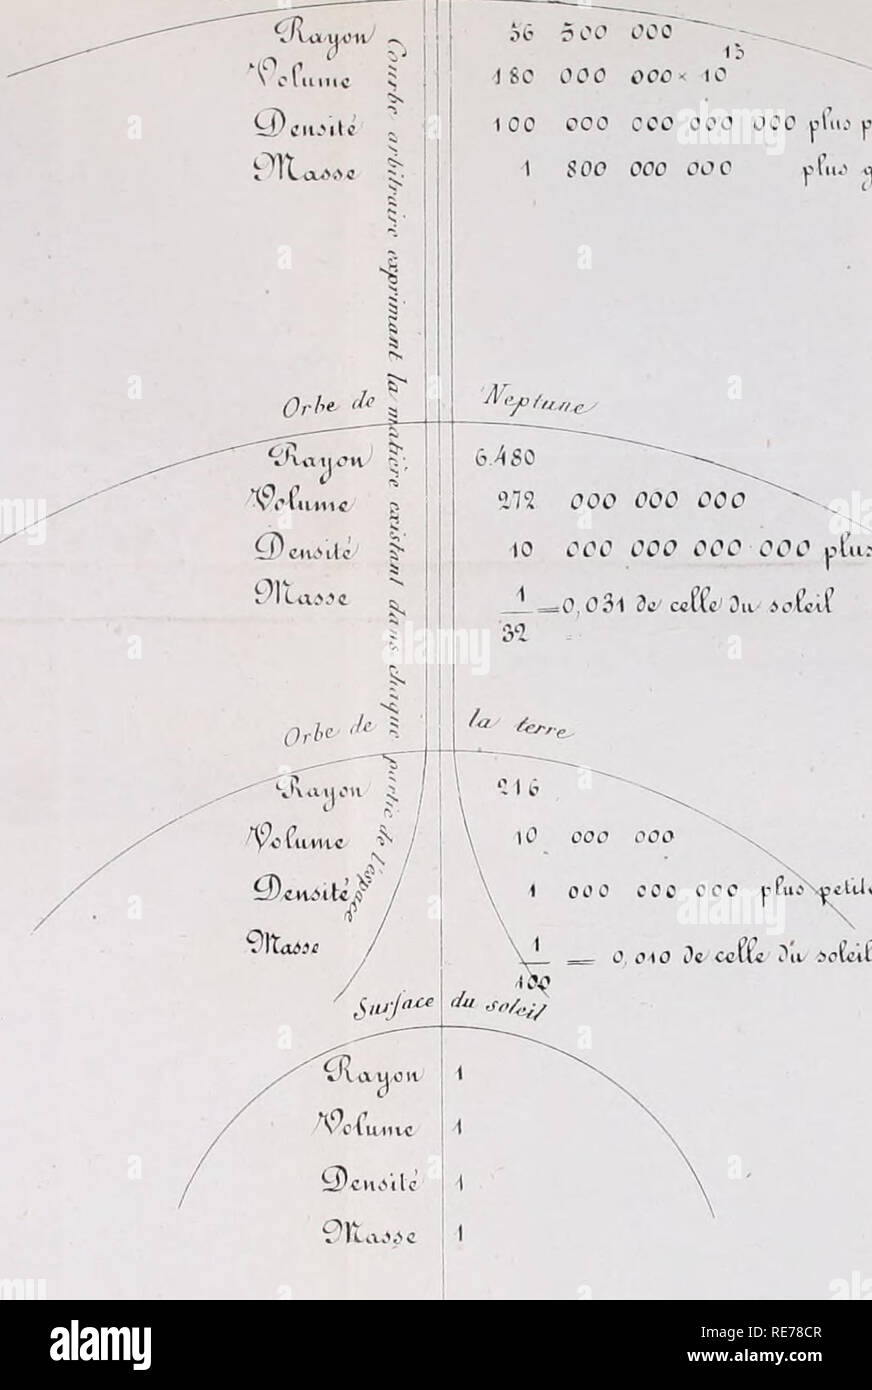 Rayon 56 500 000
Volume 180 000 000 × 10¹⁵
Densité 100 000 000 000 000 plus p
Masse 1 800 000 000 plus g
Courbe arbitraire exprimant la matière existant dans chaque partie de l'espace
Orbe de Neptune
Rayon 6.480
Volume 272 000 000 000
Densité 10 000 000 000 000 plus
Masse 1/32 = 0,031 de celle du soleil
Orbe de la terre
Rayon 216
Volume 10 000 000
Densité 1 000 000 000 plus petite
Masse 1/100 = 0,010 de celle du soleil
Surface du soleil
Rayon 1
Volume 1
Densité 1
Masse 1
alamy
Image ID: RE78CR
www.alamy.com